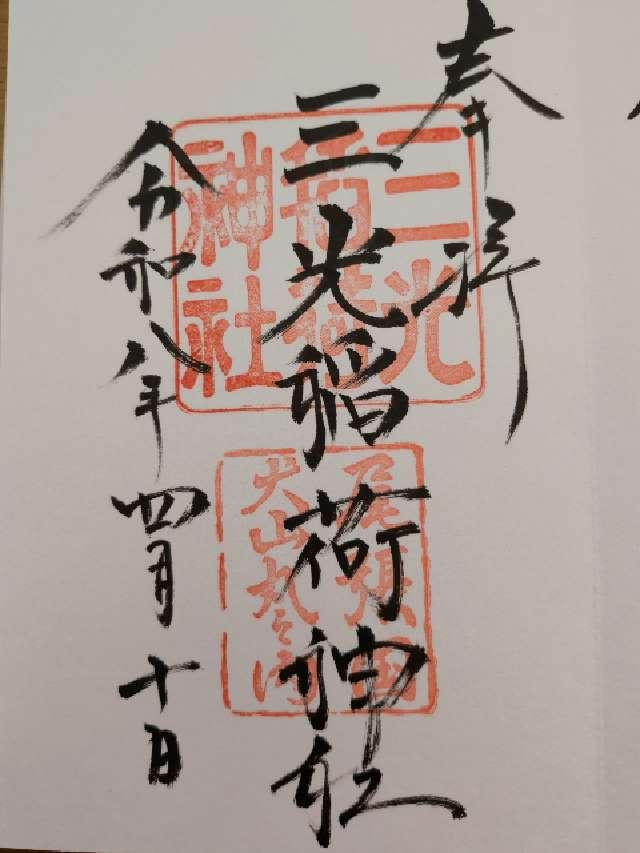 奉拝
三光稲荷神社
令和八年四月十日
三光
稲荷
神社
尾張国
犬山丸之内